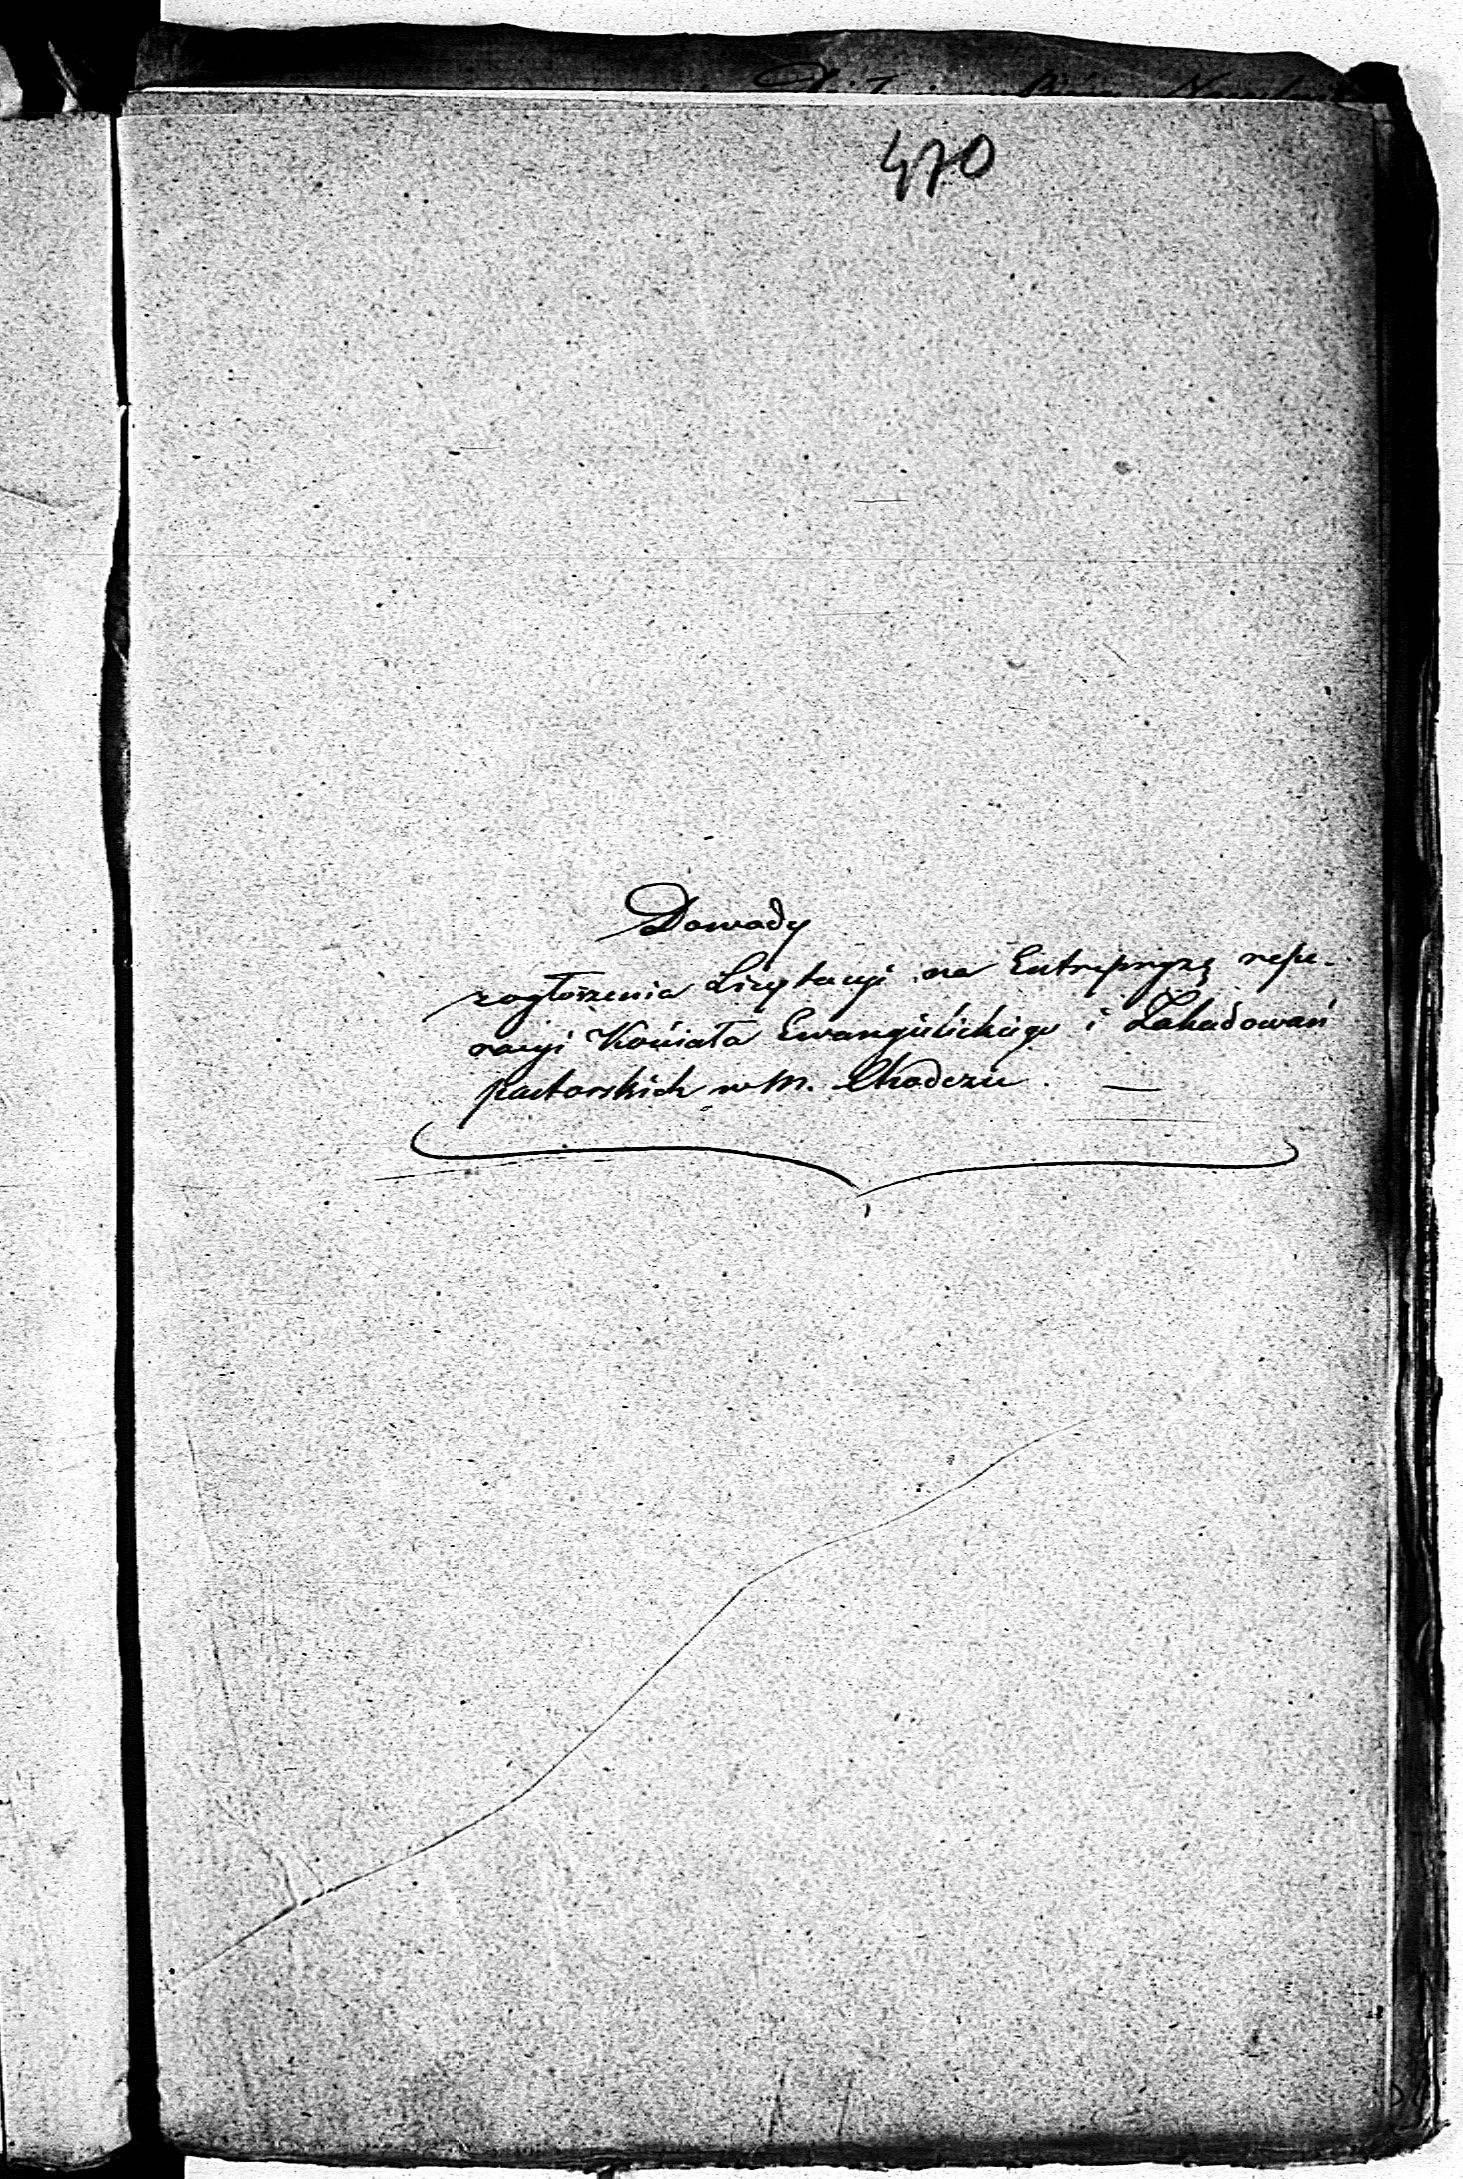 470
Dowody
zogłoszenia Licytacyi na Entrepryzę repe-
racyi Kościoła Ewangielickiego i Zabudowań
Pastorskich w M. Chodczu.